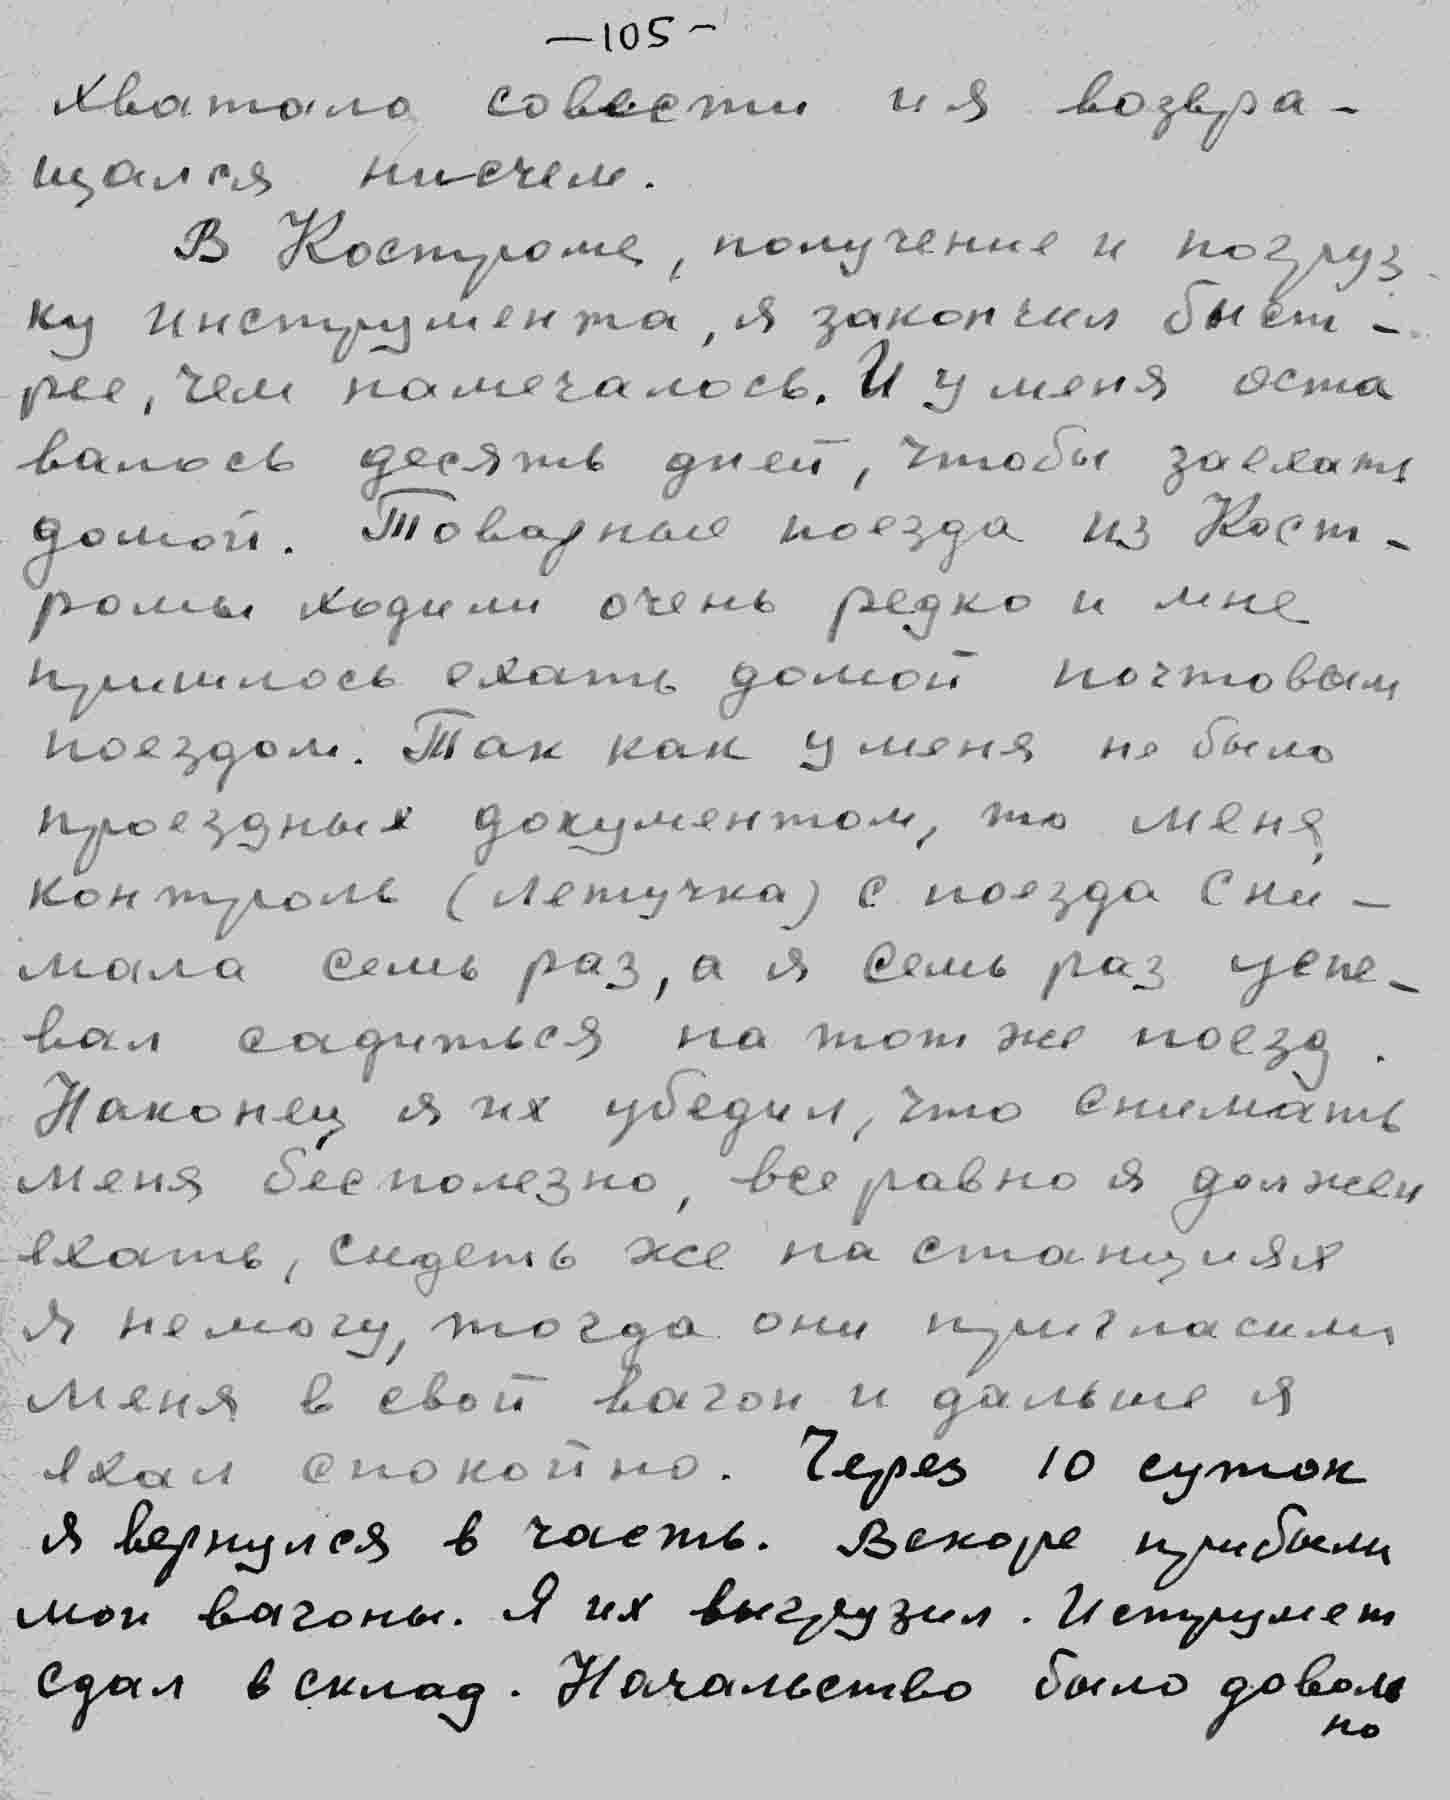 —105-
хватало совести и я возвра-
щался нисчем.
В Костроме, получение и погруз-
ку инструмента, я закончил быст-
рее, чем намечалось. И у меня оста
валось десять дней, чтобы заехать
домой. Товарные поезда из Кост-
ромы ходили очень редко и мне
пришлось ехать домой почтовым
поездом. Так как у меня не было
проездных документом, то меня,
контроль (летучка) с поезда сни-
мала семь раз, а я семь раз успе-
вал садиться на тот же поезд.
Наконец я их убедил, что снимать
меня бесполезно, все равно я должен
ехать, сидеть же на станциях
я немогу, тогда они пригласили
меня в свой вагон и дальше я
ехал спокойно. Через 10 суток
я вернулся в часть. Вскоре прибыли
мои вагоны. Я их выгрузил. Иструмет
сдал в склад. Начальство было доволь
но